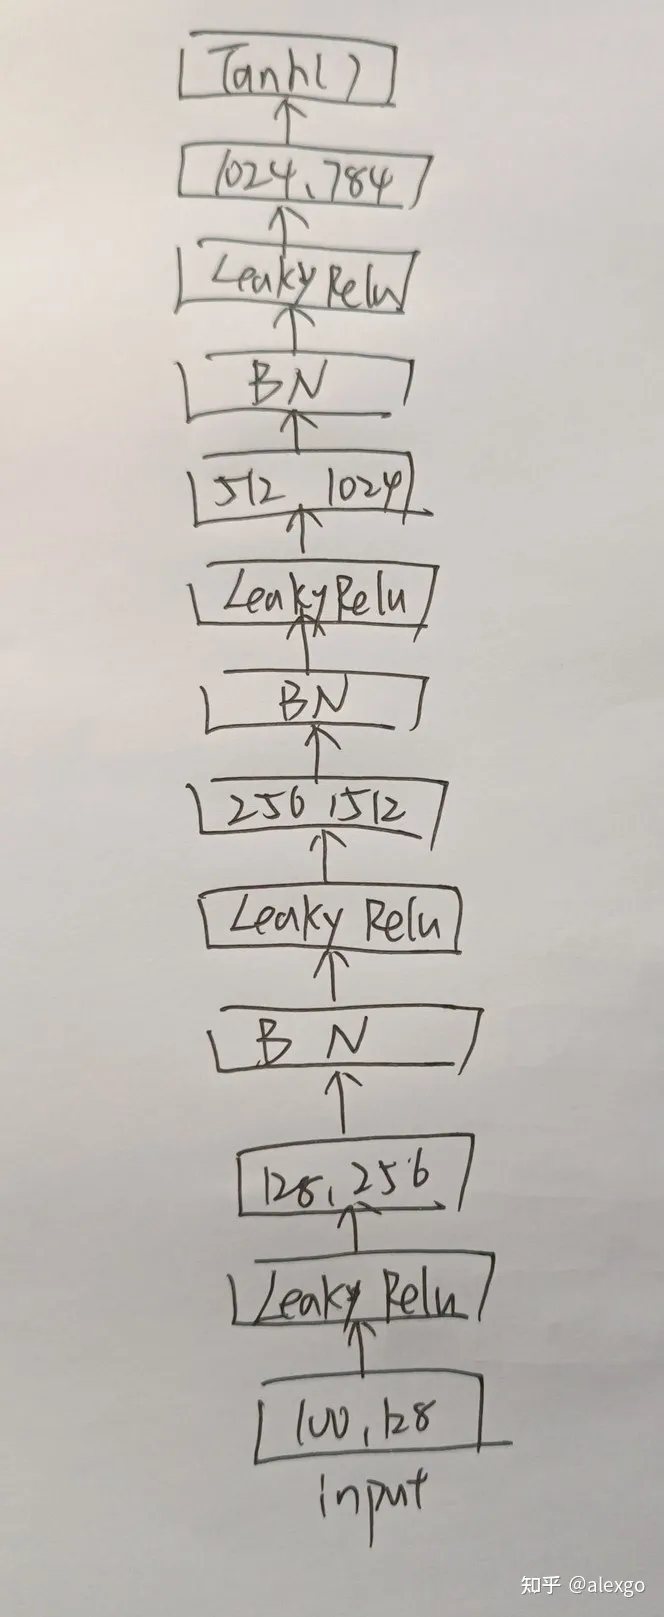 Tanh()
1024, 784
Leaky Relu
BN
512 1024
Leaky Relu
BN
256, 512
Leaky Relu
BN
128, 256
Leaky Relu
100, 128
input
知乎 @alexgo